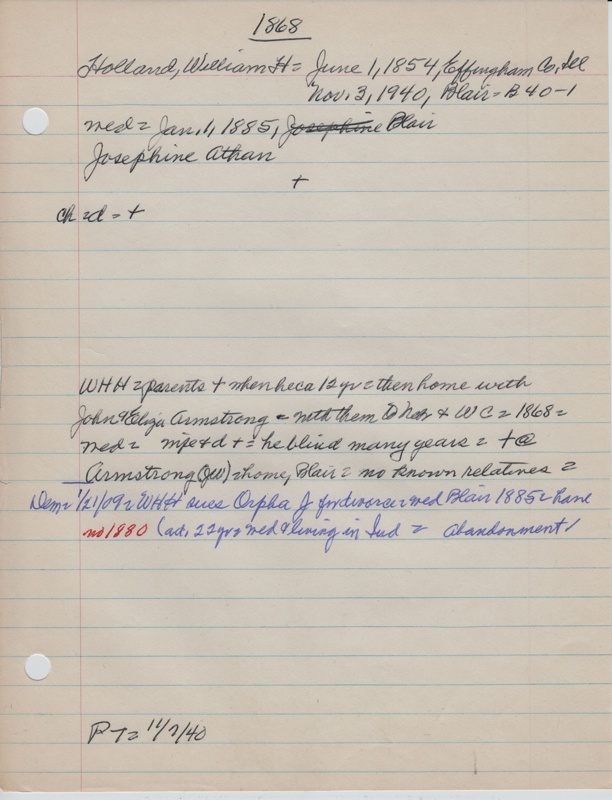 1868
Holland, William H = June 1, 1854, Effingham Co, Ill
Nov. 3, 1940, Blair = B 40-1
med = Jan. 1, 1885, Josephine Blair
Josephine Athan
+
ch = d = +
WHH = parents + when he ca 12 yr = then home with
John & Eliza Armstrong = with them to & WC = 1868 =
med = wife & d + = he blind many years = + @
Armstrong = home, Blair = no known relatives =
Dem = 1/21/09 = WHH sues Orpha J for divorce = med Blair 1885 = have
no 1880 (ad. 22 yr = med & living in Ind = abandonment/
P T = 11/7/40